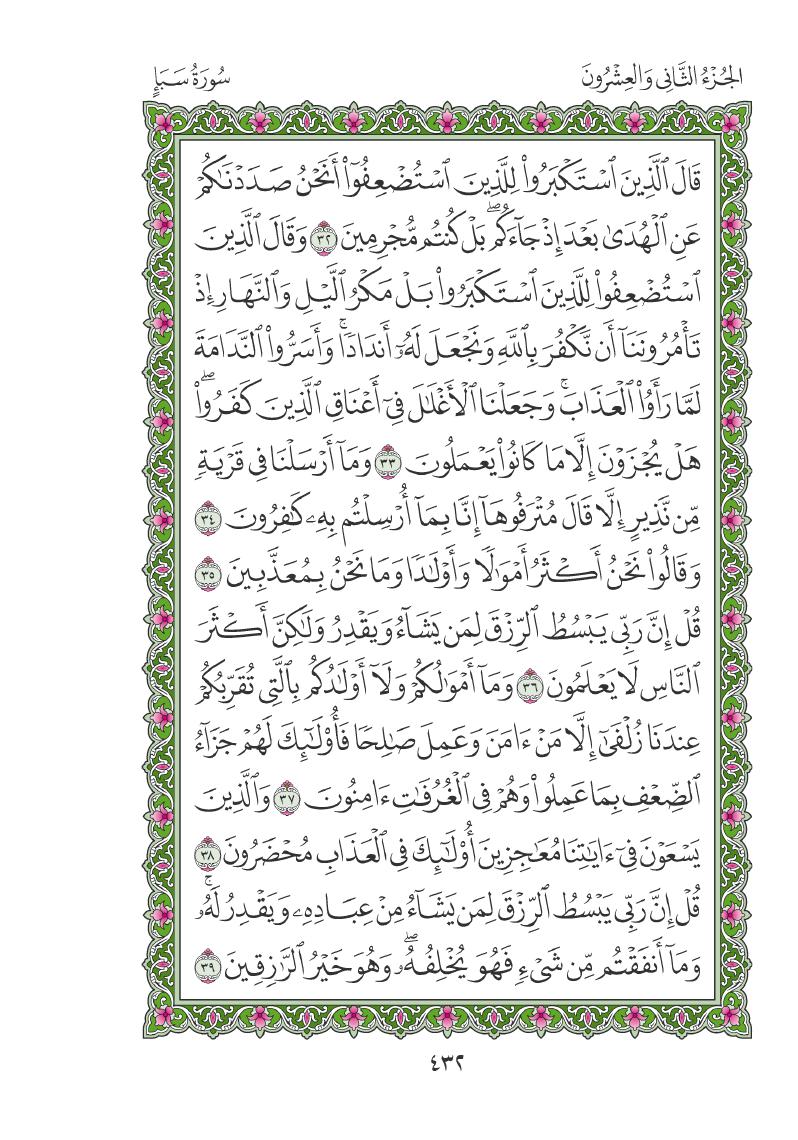 الجُزْءُ الثَّانِي وَالعِشْرُونَ
سُورَةُ سَبَإٍ
قَالَ ٱلَّذِينَ ٱسْتَكْبَرُوا۟ لِلَّذِينَ ٱسْتُضْعِفُوٓا۟ أَنَحْنُ صَدَدْنَـٰكُمْ
عَنِ ٱلْهُدَىٰ بَعْدَ إِذْ جَآءَكُم ۖ بَلْ كُنتُم مُّجْرِمِينَ ٣٢ وَقَالَ ٱلَّذِينَ
ٱسْتُضْعِفُوا۟ لِلَّذِينَ ٱسْتَكْبَرُوا۟ بَلْ مَكْرُ ٱلَّيْلِ وَٱلنَّهَارِ إِذْ
تَأْمُرُونَنَآ أَن نَّكْفُرَ بِٱللَّهِ وَنَجْعَلَ لَهُۥٓ أَندَادًا ۚ وَأَسَرُّوا۟ ٱلنَّدَامَةَ
لَمَّا رَأَوُا۟ ٱلْعَذَابَ ۚ وَجَعَلْنَا ٱلْأَغْلَـٰلَ فِىٓ أَعْنَاقِ ٱلَّذِينَ كَفَرُوا۟ ۖ
هَلْ يُجْزَوْنَ إِلَّا مَا كَانُوا۟ يَعْمَلُونَ ٣٣ وَمَآ أَرْسَلْنَا فِى قَرْيَةٍ
مِّن نَّذِيرٍ إِلَّا قَالَ مُتْرَفُوهَآ إِنَّا بِمَآ أُرْسِلْتُم بِهِۦ كَـٰفِرُونَ ٣٤
وَقَالُوا۟ نَحْنُ أَكْثَرُ أَمْوَٰلًا وَأَوْلَـٰدًا وَمَا نَحْنُ بِمُعَذَّبِينَ ٣٥
قُلْ إِنَّ رَبِّى يَبْسُطُ ٱلرِّزْقَ لِمَن يَشَآءُ وَيَقْدِرُ وَلَـٰكِنَّ أَكْثَرَ
ٱلنَّاسِ لَا يَعْلَمُونَ ٣٦ وَمَآ أَمْوَٰلُكُمْ وَلَآ أَوْلَـٰدُكُم بِٱلَّتِى تُقَرِّبُكُمْ
عِندَنَا زُلْفَىٰٓ إِلَّا مَنْ ءَامَنَ وَعَمِلَ صَـٰلِحًا فَأُو۟لَـٰٓئِكَ لَهُمْ جَزَآءُ
ٱلضِّعْفِ بِمَا عَمِلُوا۟ وَهُمْ فِى ٱلْغُرُفَـٰتِ ءَامِنُونَ ٣٧ وَٱلَّذِينَ
يَسْعَوْنَ فِىٓ ءَايَـٰتِنَا مُعَـٰجِزِينَ أُو۟لَـٰٓئِكَ فِى ٱلْعَذَابِ مُحْضَرُونَ ٣٨
قُلْ إِنَّ رَبِّى يَبْسُطُ ٱلرِّزْقَ لِمَن يَشَآءُ مِنْ عِبَادِهِۦ وَيَقْدِرُ لَهُۥ ۚ
وَمَآ أَنفَقْتُم مِّن شَىْءٍ فَهُوَ يُخْلِفُهُۥ ۖ وَهُوَ خَيْرُ ٱلرَّٰزِقِينَ ٣٩
٤٣٢